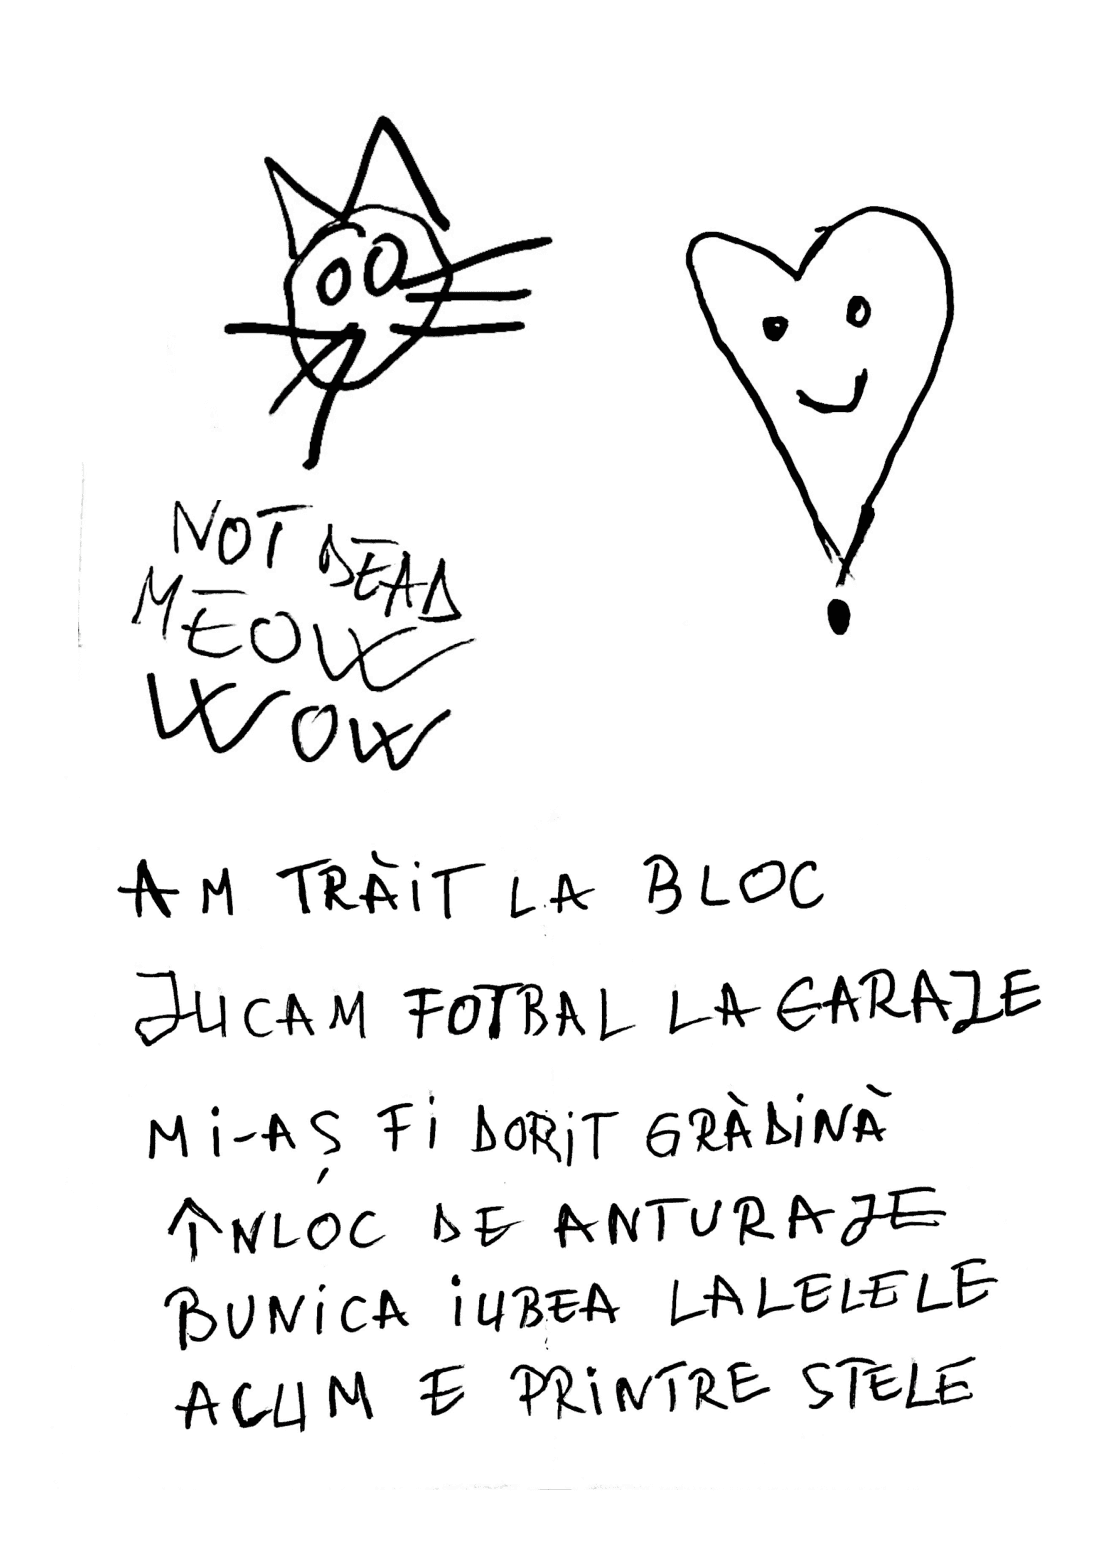 NOT DEAD
MEOW
WOW
AM TRĂIT LA BLOC
JUCAM FOTBAL LA GARAJE
MI-AȘ FI DORIT GRĂDINĂ
ÎNLOC DE ANTURAJE
BUNICA IUBEA LALELELE
ACUM E PRINTRE STELE